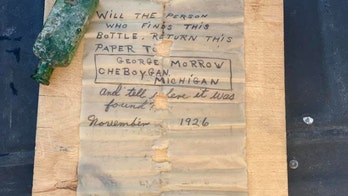 WILL THE PERSON
WHO FINDS THIS
BOTTLE, RETURN THIS
PAPER TO
GEORGE MORROW
CHEBOYGAN,
MICHIGAN
And tell where it was
found?
November 1926